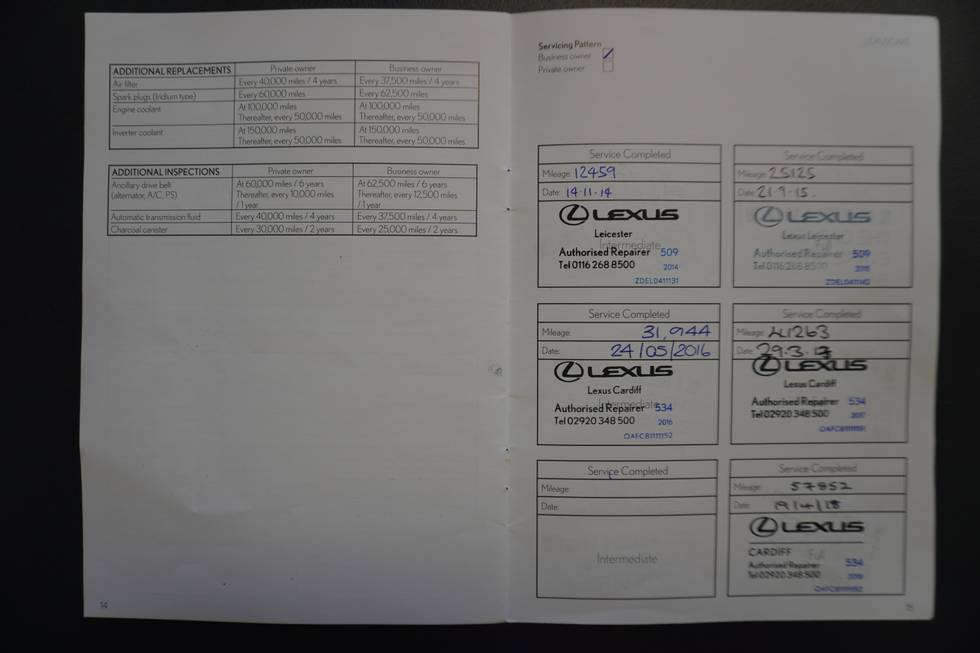 ADDITIONAL REPLACEMENTS Private owner Business owner
Air filter Every 40,000 miles / 4 years Every 37,500 miles / 4 years
Spark plugs (Iridium type) Every 60,000 miles Every 62,500 miles
Engine coolant At 100,000 miles At 100,000 miles
Thereafter, every 50,000 miles Thereafter, every 50,000 miles
Inverter coolant At 150,000 miles At 150,000 miles
Thereafter, every 50,000 miles Thereafter, every 50,000 miles
ADDITIONAL INSPECTIONS Private owner Business owner
Ancillary drive belt At 60,000 miles / 6 years At 62,500 miles / 6 years
(alternator, A/C, PS) Thereafter, every 10,000 miles Thereafter, every 12,500 miles
/ 1 year / 1 year
Automatic transmission fluid Every 40,000 miles / 4 years Every 37,500 miles / 4 years
Charcoal canister Every 30,000 miles / 2 years Every 25,000 miles / 2 years
14
Servicing Pattern
Business owner
Private owner
Service Completed
Mileage: 12459
Date: 14·11·14
LEXUS
Leicester
Intermediate
Authorised Repairer 509
Tel 0116 268 8500 2014
ZDEL0411131
Service Completed
Mileage: 25125
Date: 21·9·15.
LEXUS
Lexus Leicester
Full
Authorised Repairer 509
Tel 0116 268 8500 2015
Service Completed
Mileage: 31,944
Date: 24/05/2016
LEXUS
Lexus Cardiff
Intermediate
Authorised Repairer 534
Tel 02920 348 500 2016
OAFC8111152
Service Completed
Mileage: 41263
Date: 29.3.17
LEXUS
Lexus Cardiff
Authorised Repairer 534
Tel 02920 348 500 2017
Service Completed
Mileage:
Date:
Intermediate
Service Completed
Mileage: 57852
Date: 19/4/18
LEXUS
CARDIFF Full
Authorised Repairer 534
Tel 02920 348 500 2018
15